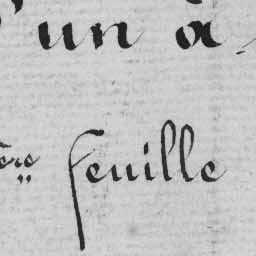 'un à
ère feuille